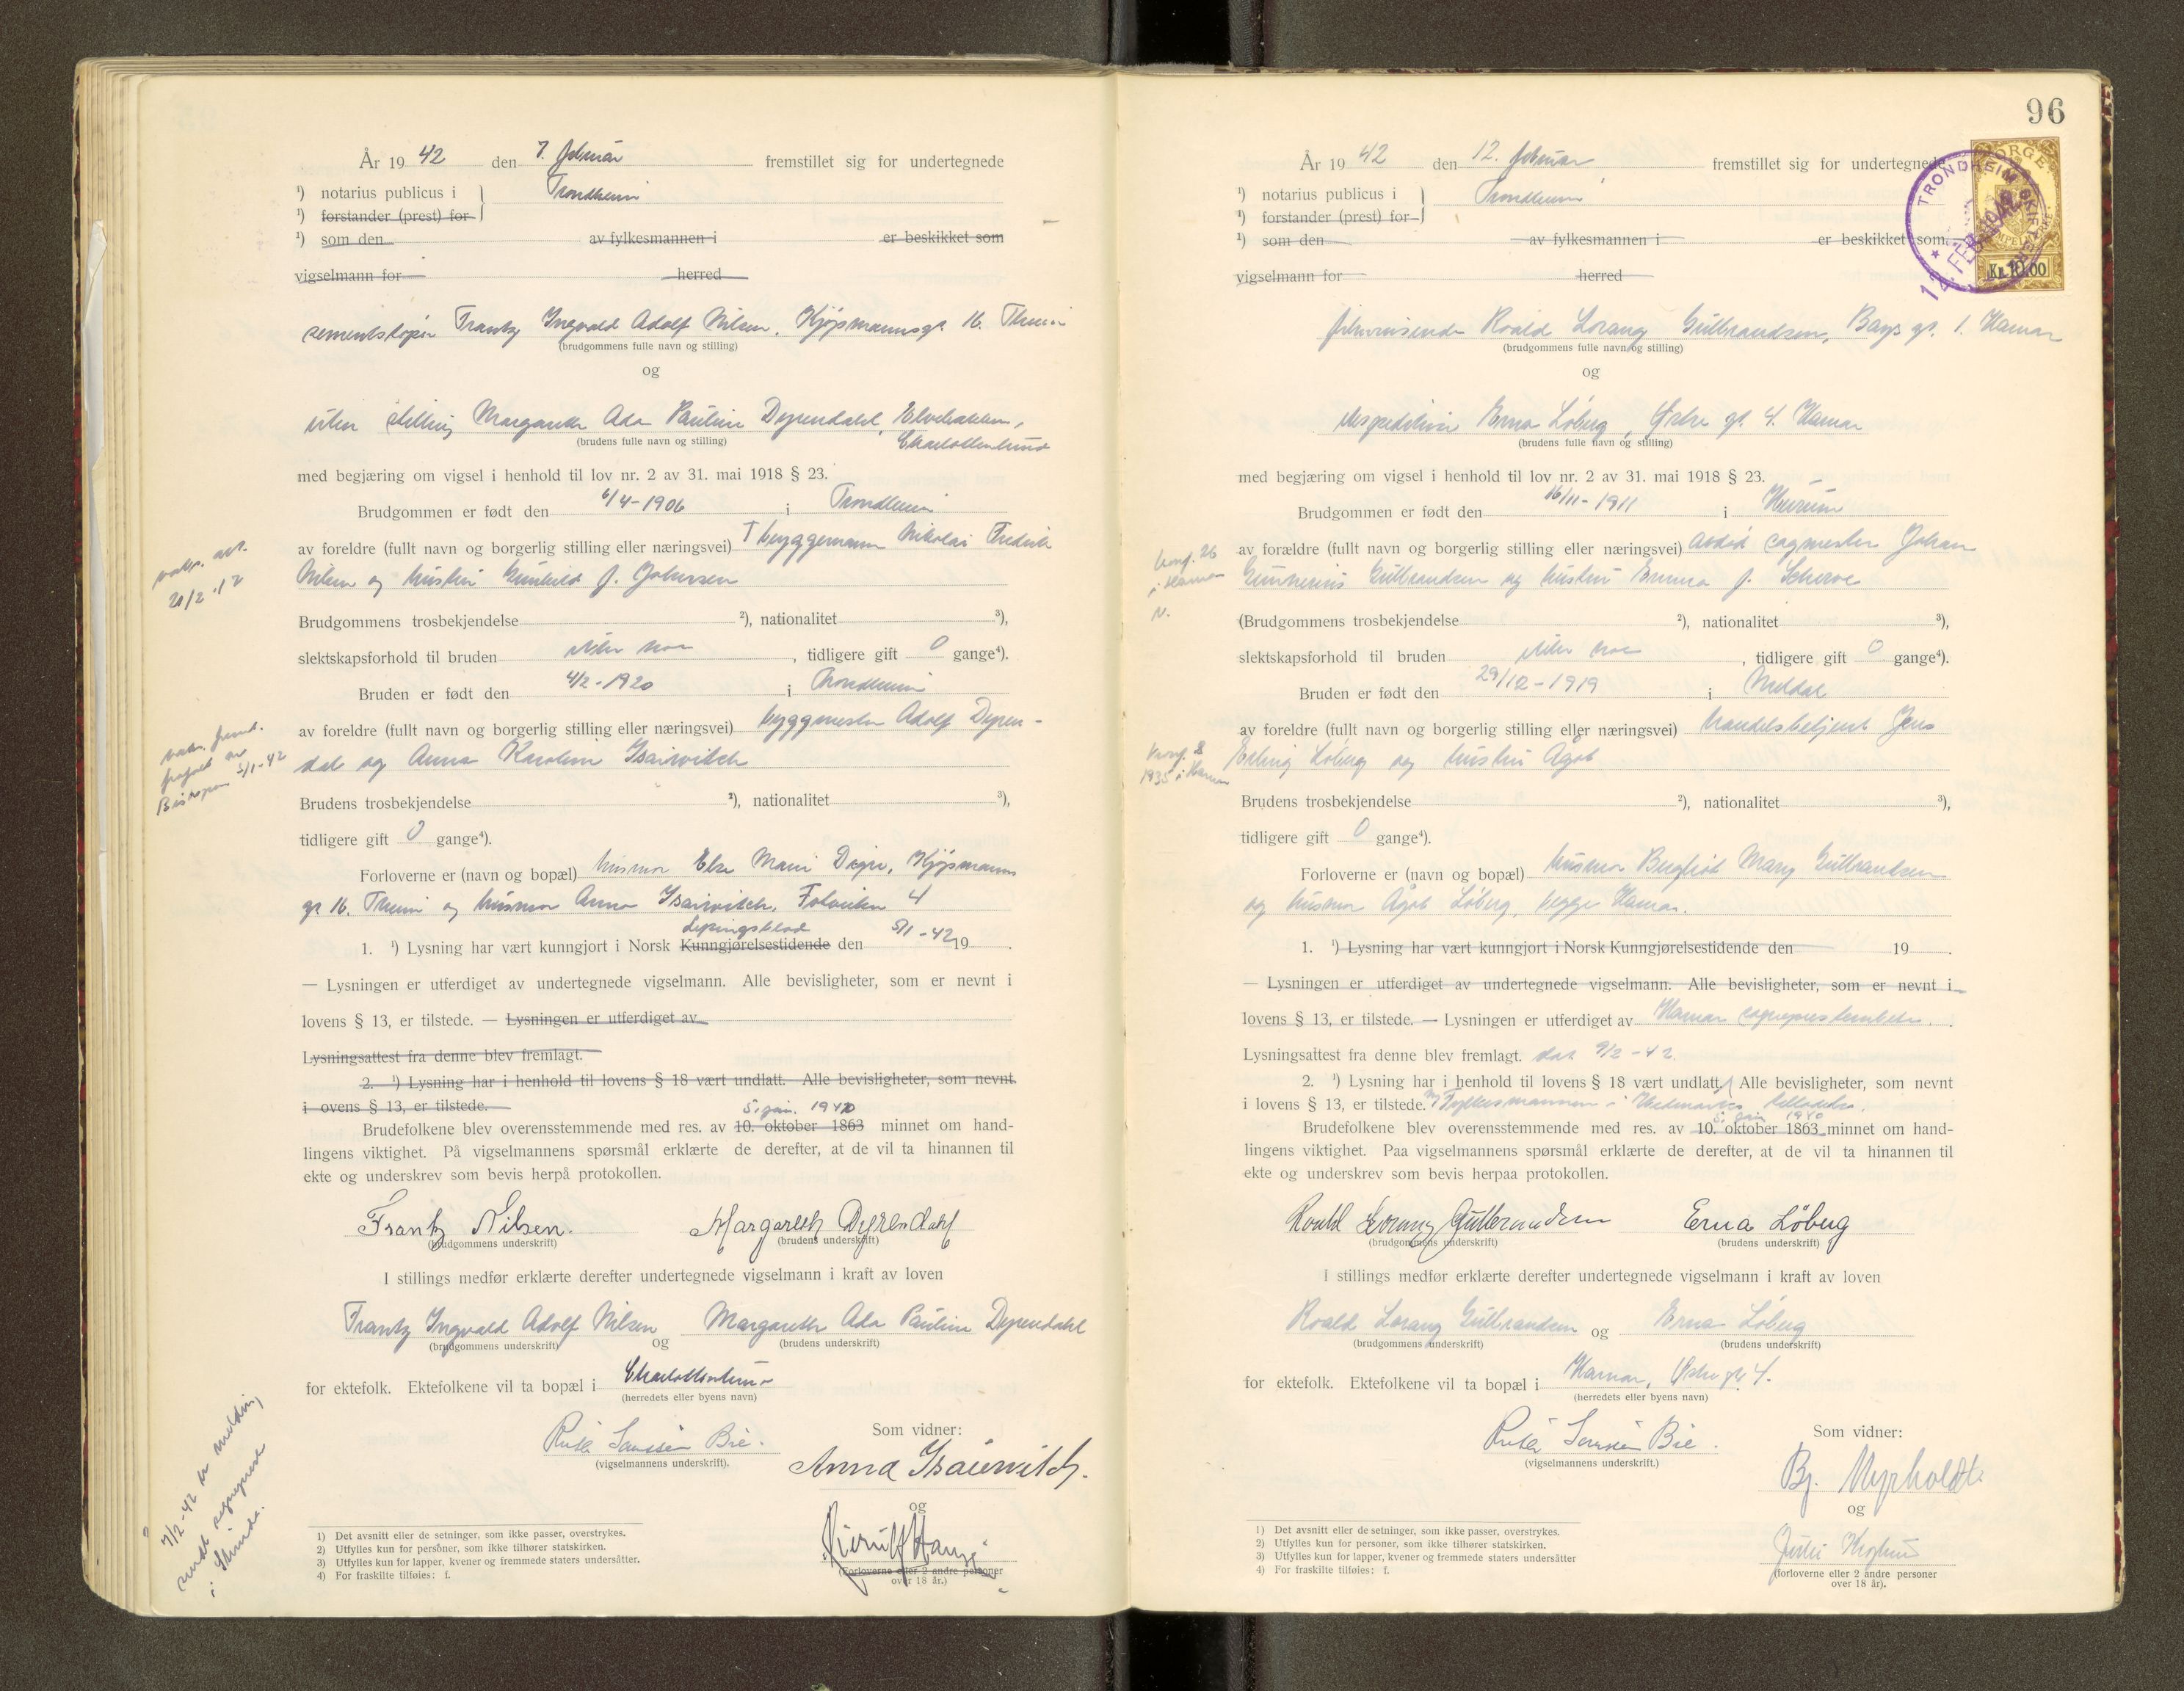 År 19 42 den 7. februar fremstillet sig for undertegnede
¹) notarius publicus i } Trondheim
¹) forstander (prest) for
¹) som den av fylkesmannen i er beskikket som
vigselmann for herred
sementstøper Frantz Ingvald Adolf Nilsen, Kjøpmannsgt. 16. Th.heim
(brudgommens fulle navn og stilling)
og
uten stilling Margareth Ada Pauline Dyrendahl,
(brudens fulle navn og stilling)
Charlottenlund
med begjæring om vigsel i henhold til lov nr. 2 av 31. mai 1918 § 23.
Brudgommen er født den 6/4-1906 i Trondheim
av foreldre (fullt navn og borgerlig stilling eller næringsvei) bryggemann Nikolai Fredrik
Nilsen og hustru Gunhild f. Johnsen
Brudgommens trosbekjendelse ²), nationalitet ³),
slektskapsforhold til bruden uten noe, tidligere gift 0 gange⁴).
Bruden er født den 4/2-1920 i Trondheim
av foreldre (fullt navn og borgerlig stilling eller næringsvei) byggmester Adolf Dyren-
dal og Anna Karoline Isaiwitsch
Brudens trosbekjendelse ²), nationalitet ³),
tidligere gift 0 gange⁴).
Forloverne er (navn og bopæl) husmor Else Marie Digre, Kjøpmanns
gt 16. Th.heim og husmor Anna Isaiwitsch, 4
1. ¹) Lysning har vært kunngjort i Norsk Kunngjørelsestidende Lysingsblad den 5/1-42 19 .
— Lysningen er utferdiget av undertegnede vigselmann. Alle bevisligheter, som er nevnt i
lovens § 13, er tilstede. — Lysningen er utferdiget av
Lysningsattest fra denne blev fremlagt.
2. ¹) Lysning har i henhold til lovens § 18 vært undlatt. Alle bevisligheter, som nevnt
i ovens § 13, er tilstede.
5. jan. 1940
Brudefolkene blev overensstemmende med res. av 10. oktober 1863 minnet om hand-
lingens viktighet. På vigselmannens spørsmål erklærte de derefter, at de vil ta hinannen til
ekte og underskrev som bevis herpå protokollen.
Frantz Nilsen. Margareth Dyrendahl
(brudgommens underskrift) (brudens underskrift)
I stillings medfør erklærte derefter undertegnede vigselmann i kraft av loven
Frantz Ingvald Adolf Nilsen og Margareth Ada Pauline Dyrendahl
(brudgommens underskrift) (brudens underskrift)
for ektefolk. Ektefolkene vil ta bopæl i Charlottenlund
(herredets eller byens navn)
Ruth Bie.
(vigselmannens underskrift).
Som vidner:
Anna Isaiewitch.
og
(Forloverne eller 2 andre personer
over 18 år.)
1) Det avsnitt eller de setninger, som ikke passer, overstrykes.
2) Utfylles kun for persòner, som ikke tilhører statskirken.
3) Utfylles kun for lapper, kvener og fremmede staters undersåtter.
4) For fraskilte tilføies: f.
vaks. att.
20/2.12
vaks. fremt.
frafalt av
Bispen 5/1-42
7/2-42 er melding
sendt sogneprest
i Strinda.
96
År 19 42 den 12. februar fremstillet sig for undertegnede
¹) notarius publicus i } Trondheim
¹) forstander (prest) for
¹) som den av fylkesmannen i er beskikket som
vigselmann for herred
TRONDHEIM
NORGE
12. FEB. 1942
Kr. 10.00
Roald Lorang Gulbrandsen, Bangs gt. 1. Hamar
(brudgommens fulle navn og stilling)
og
ekspeditrise Erna Løberg, Østre gt. 4. Hamar
(brudens fulle navn og stilling)
med begjæring om vigsel i henhold til lov nr. 2 av 31. mai 1918 § 23.
Brudgommen er født den 16/11-1911 i Hurum
av forældre (fullt navn og borgerlig stilling eller næringsvei) avdød sagmester Johan
Gunnerius Gulbrandsen og hustru Emma f. Scherve
(Brudgommens trosbekjendelse ²), nationalitet ³),
slektskapsforhold til bruden uten noe, tidligere gift 0 gange⁴).
Bruden er født den 29/12-1919 i Meldal
av foreldre (fullt navn og borgerlig stilling eller næringsvei) handelsbetjent Jens
Erling Løberg og hustru Ågot
Brudens trosbekjendelse ²), nationalitet ³),
tidligere gift 0 gange⁴).
Forloverne er (navn og bopæl) husmor Bergliot Mary Gulbrandsen
og husmor Ågot Løberg, begge Hamar.
1. ¹) Lysning har vært kunngjort i Norsk Kunngjørelsestidende den 19 .
— Lysningen er utferdiget av undertegnede vigselmann. Alle bevisligheter, som er nevnt i
lovens § 13, er tilstede. — Lysningen er utferdiget av Hamar sogneprestembete.
Lysningsattest fra denne blev fremlagt. dat 9/2-42.
2. ¹) Lysning har i henhold til lovens § 18 vært undlatt. Alle bevisligheter, som nevnt
i lovens § 13, er tilstede. Fylkesmannen i Hedmarks tillatelse.
5. jan 1940
Brudefolkene blev overensstemmende med res. av 10. oktober 1863 minnet om hand-
lingens viktighet. Paa vigselmannens spørsmål erklærte de derefter, at de vil ta hinannen til
ekte og underskrev som bevis herpaa protokollen.
Roald Lorang Gulbrandsen Erna Løberg
(brudgommens underskrift) (brudens underskrift)
I stillings medfør erklærte derefter undertegnede vigselmann i kraft av loven
Roald Lorang Gulbrandsen og Erna Løberg
(brudgommens underskrift) (brudens underskrift)
for ektefolk. Ektefolkene vil ta bopæl i Hamar, Østre gt. 4.
(herredets eller byens navn)
Ruth Bie.
(vigselmannens underskrift.)
Som vidner:
Bj. Myrholdt
og
(forloverne eller 2 andre personer
over 18 år).
1) Det avsnitt eller de setninger, som ikke passer, overstrykes.
2) Utfylles kun for personer, som ikke tilhører statskirken.
3) Utfylles kun for lapper, kvener og fremmede staters undersåtter
4) For fraskilte tilføies: f.
konf. 26
i Hamar
konf. 8
1935 i Hamar